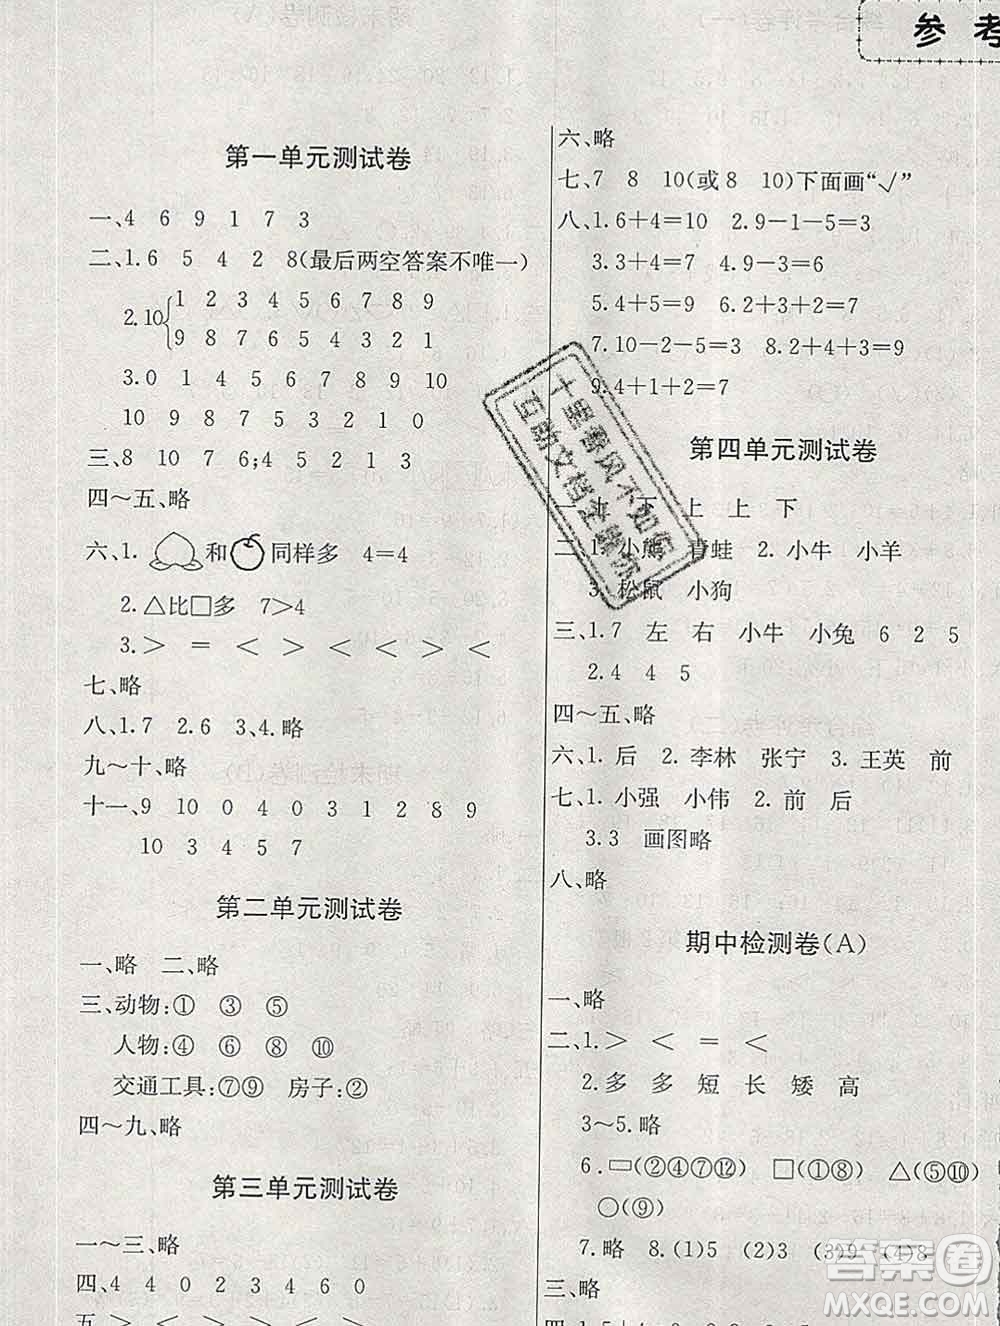 参考
第一单元测试卷
一、4 6 9 1 7 3
二、1.6 5 4 2 8(最后两空答案不唯一)
2.10{1 2 3 4 5 6 7 8 9
9 8 7 6 5 4 3 2 1
3.0 1 4 5 6 8 9 10
10 9 8 7 5 3 2 1 0
三、8 10 7 6;4 5 2 1 3
四～五、略
六、1. 和 同样多 4=4
2.△比□多 7>4
3.> = < < < < < <
七、略
八、1.7 2.6 3、4.略
九～十、略
十一、9 10 0 4 0 3 1 2 8 9
10 3 4 5 7
第二单元测试卷
一、略 二、略
三、动物:① ③ ⑤
人物:④ ⑥ ⑧ ⑩
交通工具:⑦⑨ 房子:②
四～九、略
第三单元测试卷
一～三、略
四、4 4 0 2 3 4 6 0
五、> < < > < =
六、略
七、7 8 10(或8 10)下面画“√”
八、1.6+4=10 2.9-1-5=3
3.3+4=7 4.9-3=6
5.4+4=8 6.2+3+2=7
7.10-2-5=3 8.2+3+4=9
9.4+1+2=7
第四单元测试卷
一、上 下 上 上 下
二、1.小熊 青蛙 2.小牛 小羊
3.松鼠 小狗
三、1.7 左 右 小牛 小兔 6 2 5
2.4 4 5
四～五、略
六、1.后 2.李林 张宁 3.王英 前
七、1.小强 小伟 2.前 后
3.3 画图略
八、略
期中检测卷(A)
一、略
二、1.> < = <
2.多 多 短 长 矮 高
3～5.略
6.▭(②④⑦⑫) □(①⑧) △(⑤⑩)
○(⑨)
7.略 8.(1)5 (2)3 (3)9 (4)8
三、略
十里春风不如你
百勋文档至臻你
答案圈
MXQE.COM